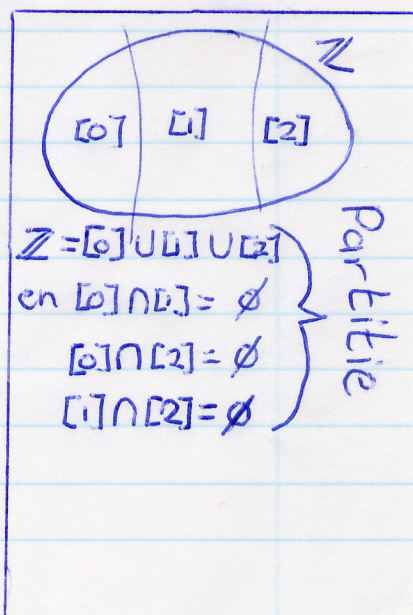 ℤ
[0] [1] [2]
ℤ = [0] ∪ [1] ∪ [2]
en [0] ∩ [1] = ∅
[0] ∩ [2] = ∅
[1] ∩ [2] = ∅
Partitie